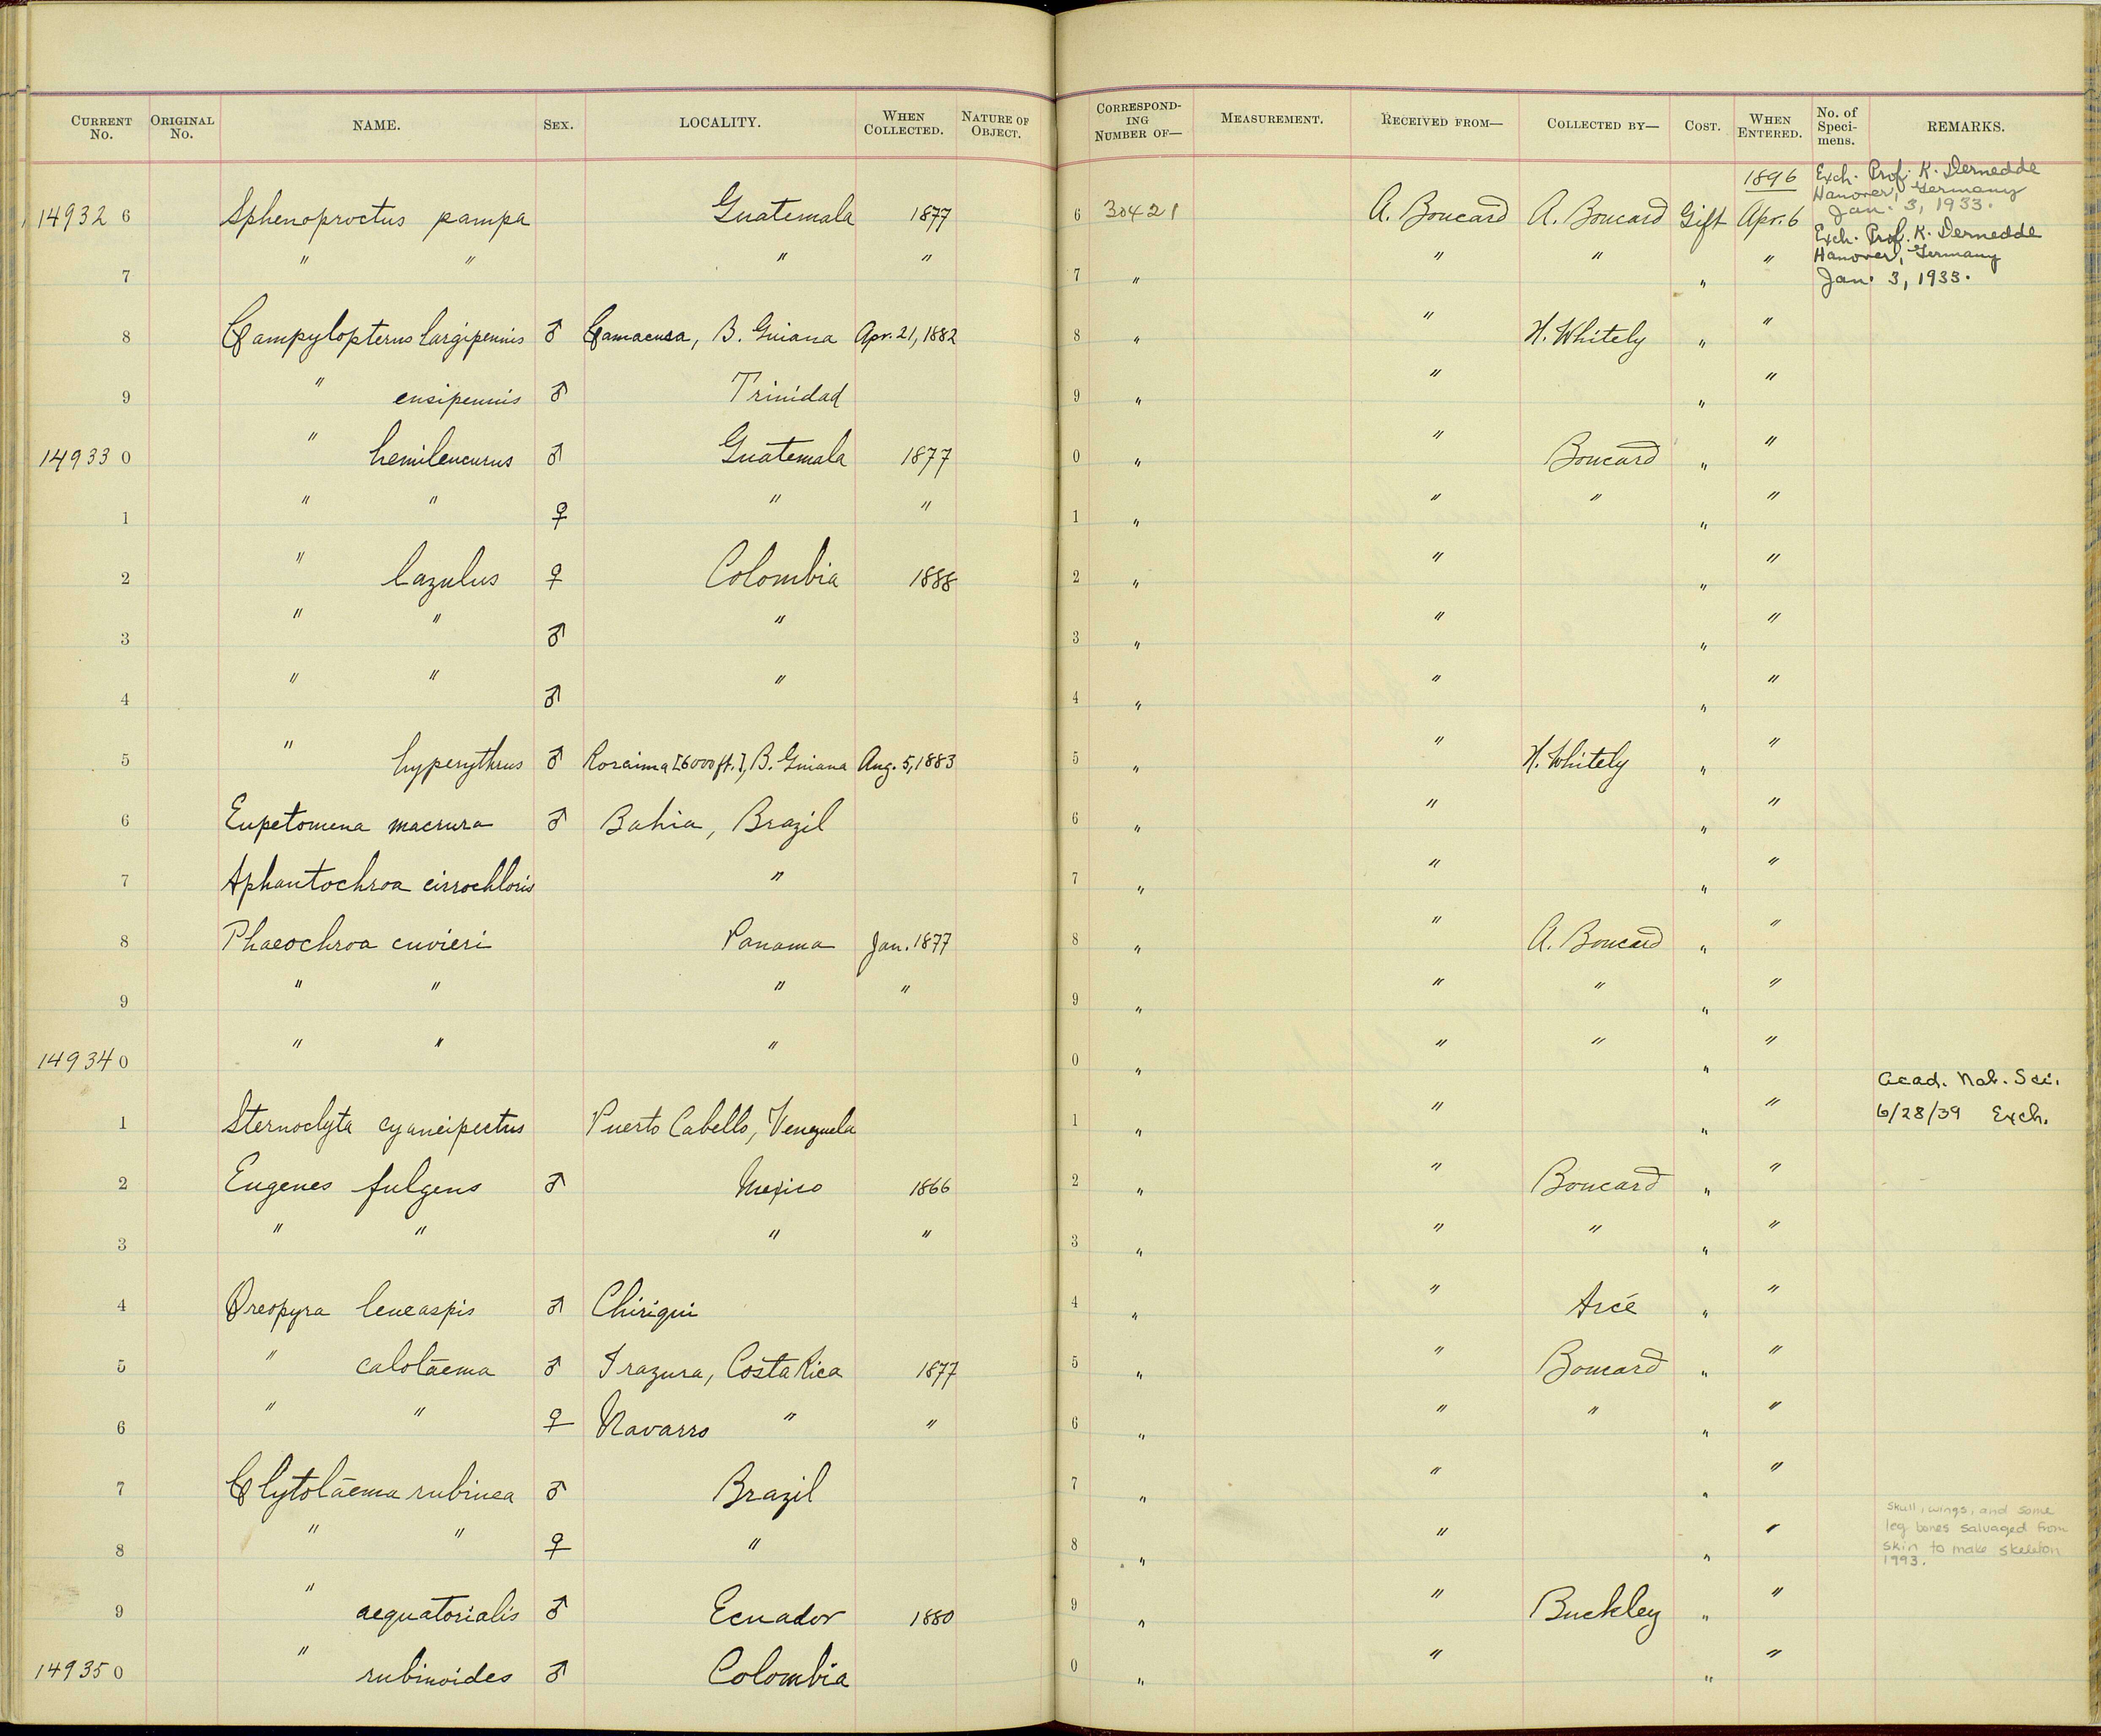 CURRENT No. ORIGINAL No. NAME. SEX. LOCALITY. WHEN COLLECTED. NATURE OF OBJECT. CORRESPONDING NUMBER OF— MEASUREMENT. RECEIVED FROM— COLLECTED BY— COST. WHEN ENTERED. No. of Specimens. REMARKS.
1896 Exch. Prof. K. Dernedde Hanover, Germany Jan. 3, 1933.
14932 6 Sphenoproctus pampa Guatemala 1877 6 30421 A. Boucard A. Boucard Gift Apr. 6
7 " " " " 7 " " " " " Exch. Prof. K. Dernedde Hanover, Germany Jan. 3, 1933.
8 Campylopterus largipennis ♂ Camacusa, B. Guiana Apr. 21, 1882 8 " " H. Whitely " "
9 " ensipennis ♂ Trinidad 9 " " " "
14933 0 " hemileucurus ♂ Guatemala 1877 0 " " Boucard " "
1 " " ♀ " " 1 " " " " "
2 " lazulus ♀ Colombia 1888 2 " " " "
3 " " ♂ " 3 " " " "
4 " " ♂ " 4 " " " "
5 " hyperythrus ♂ Roraima [6000 ft.], B. Guiana Aug. 5, 1883 5 " " H. Whitely " "
6 Eupetomena macrura ♂ Bahia, Brazil 6 " " " "
7 Aphantochroa cirrochloris " 7 " " " "
8 Phaeochroa cuvieri Panama Jan. 1877 8 " " A. Boucard " "
9 " " " " 9 " " " " "
14934 0 " " " 0 " " " " "
1 Sternoclyta cyaneipectus Puerto Cabello, Venezuela 1 " " " " Acad. Nat. Sci. 6/28/39 Exch.
2 Eugenes fulgens ♂ Mexico 1866 2 " " Boucard " "
3 " " " " 3 " " " " "
4 Oreopyra leucaspis ♂ Chiriqui 4 " " Arcé " "
5 " calolaema ♂ Irazura, Costa Rica 1877 5 " " Boucard " "
6 " " ♀ Navarro " " 6 " " " " "
7 Clytolaema rubinea ♂ Brazil 7 " " " "
8 " " ♀ " 8 " " " " Skull, wings, and some leg bones salvaged from skin to make skeleton 1993.
9 " aequatorialis ♂ Ecuador 1880 9 " " Buckley " "
14935 0 " rubinoides ♂ Colombia 0 " " " "